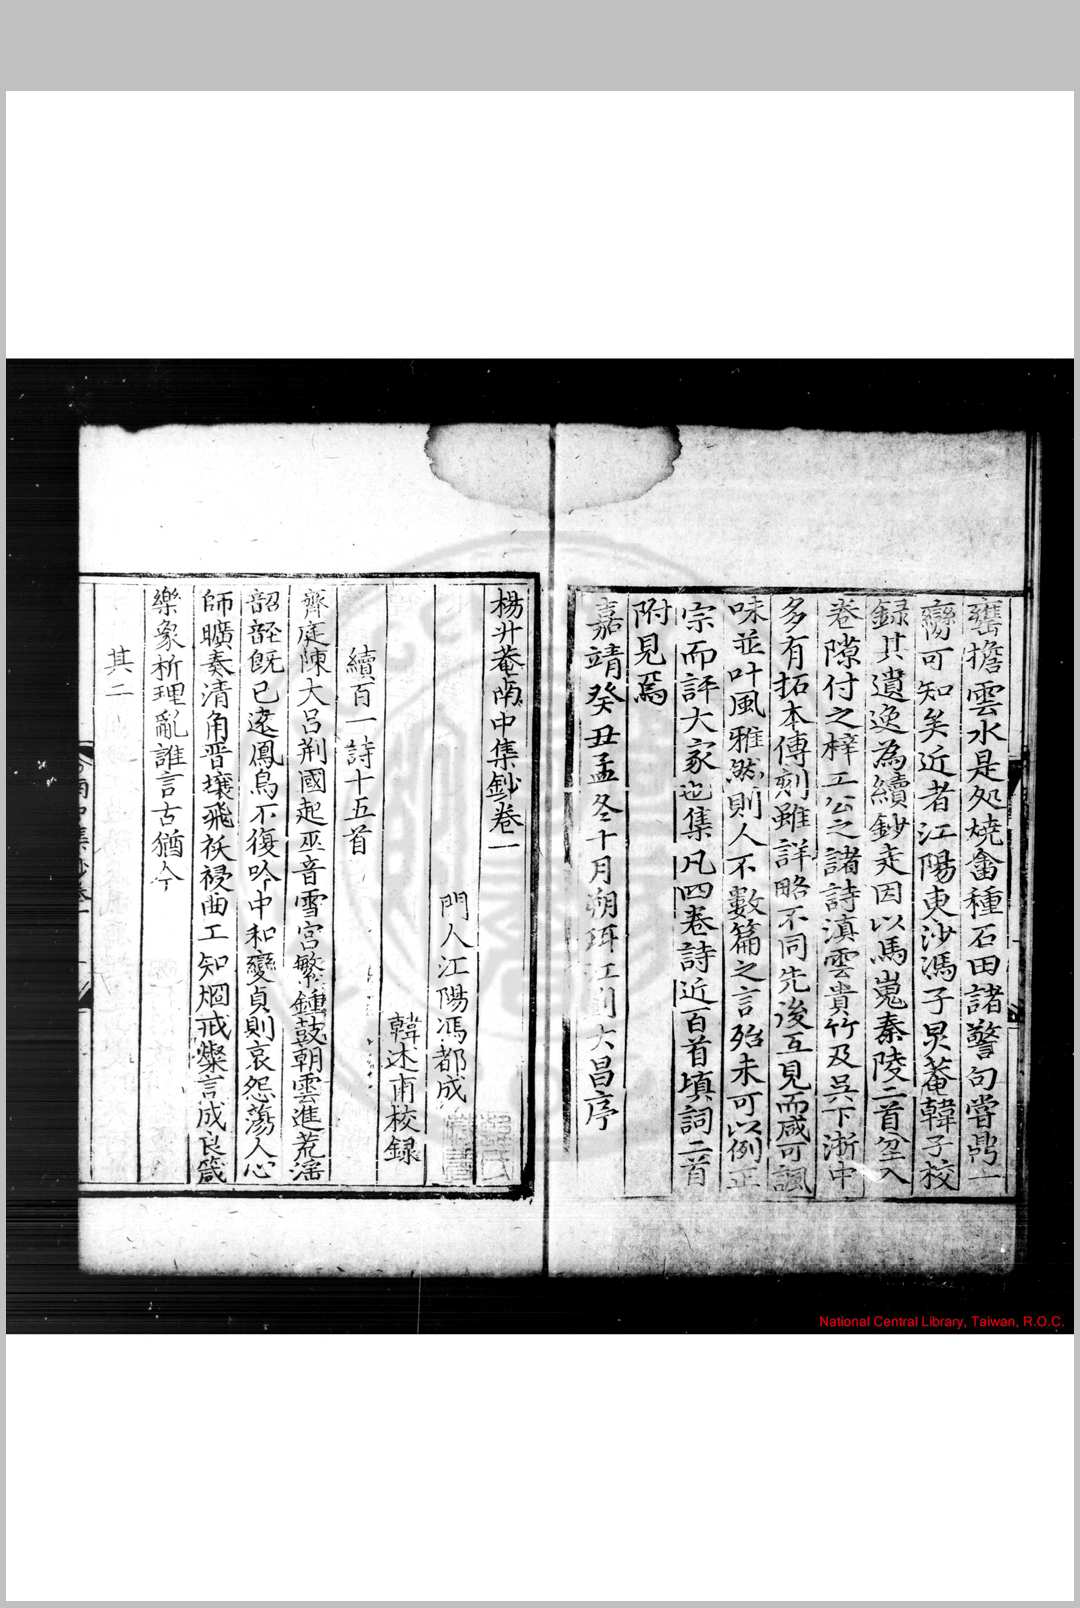 甕擔雲水是処燒畬種石田諸警句嘗鼎一
臠可知矣近者江陽東沙馮子昃菴韓子校
録其遺逸為續鈔走因以馬嵬秦陵二首坌入
卷隙付之梓工公之諸詩滇雲貴竹及吳下浙中
多有拓本傳刻雖詳略不同先後互見而咸可諷
味並叶風雅然則人不數篇之言殆未可以例正
宗而評大家也集凡四卷詩近百首填詞二首
附見焉
嘉靖癸丑孟冬十月朔珥江劉大昌序
楊升菴南中集鈔卷一
門人江陽馮都成
韓述甫校録
續百一詩十五首
齊庭陳大呂荆國起巫音雪宮繁鍾鼓朝雲進荒滛
韶䪫既已逺鳳鳥不復吟中和變貞則哀怨蕩人心
師曠奏清角晋壤飛袄祲曲工知烱戒粲言成良箴
樂象析理亂誰言古猶今
其二
南中集鈔卷一
National Central Library, Taiwan, R.O.C.